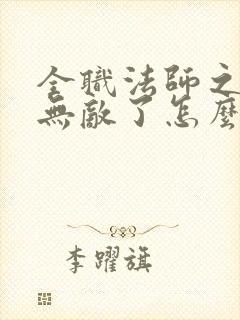 全職法師之
無敵了怎麼
李躍旗